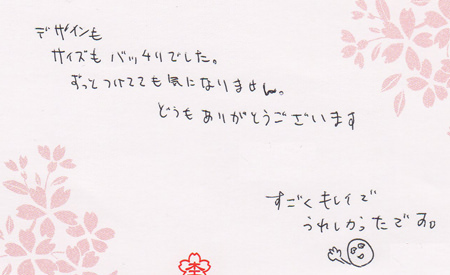 デザインも
サイズも バッチリでした。
ずっとつけてても気になりません。
どうもありがとうございます
すごくキレイで
うれしかったです。